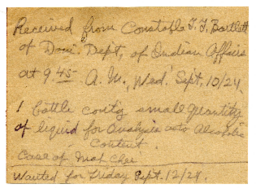 Received from Constable T.F. Bartlett
of Dom. Dept. of Indian Affairs
at 9 45 A.M., Wed. Sept. 10/24.
1 bottle contg small quantity
of liquid for analysis as to Alcoholic
Content.
Case of
Wanted for Friday Sept. 12/24.